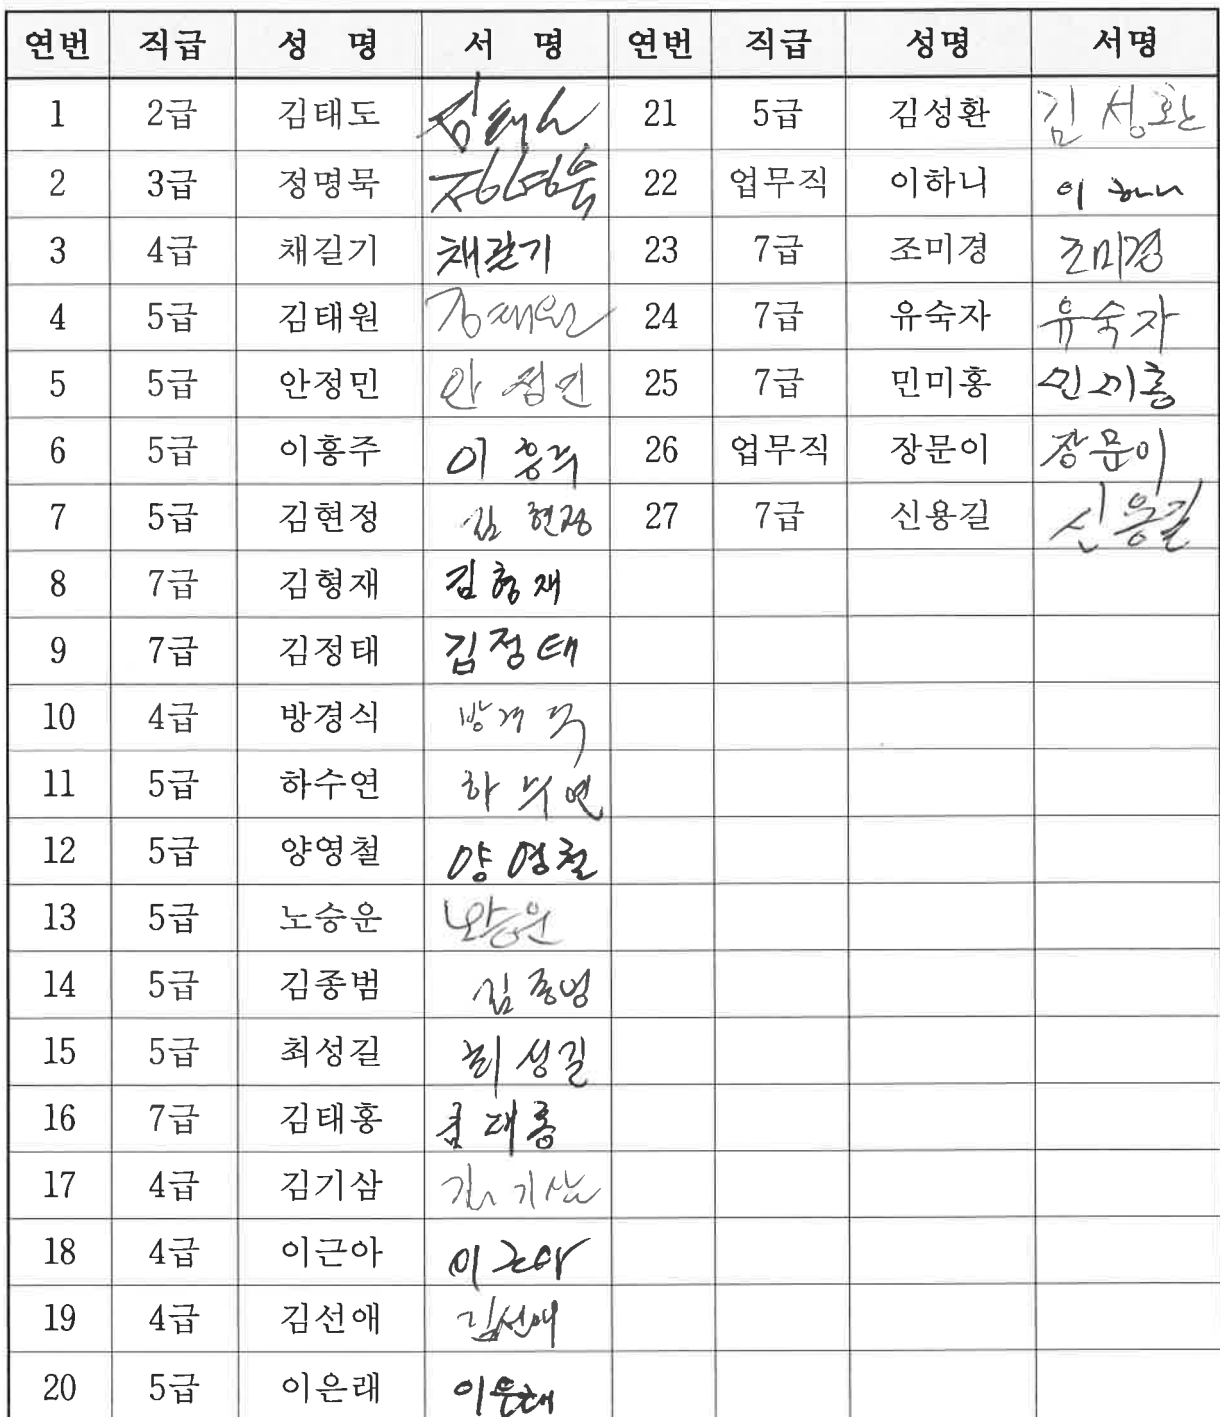 연번 직급 성 명 서 명 연번 직급 성명 서명
1 2급 김태도 김태도 21 5급 김성환 김성환
2 3급 정명묵 정명묵 22 업무직 이하니 이하니
3 4급 채길기 채길기 23 7급 조미경 조미경
4 5급 김태원 김태원 24 7급 유숙자 유숙자
5 5급 안정민 안정민 25 7급 민미홍 민미홍
6 5급 이흥주 이흥주 26 업무직 장문이 장문이
7 5급 김현정 김현정 27 7급 신용길 신용길
8 7급 김형재 김형재
9 7급 김정태 김정태
10 4급 방경식 방경식
11 5급 하수연 하수연
12 5급 양영철 양영철
13 5급 노승운 노승운
14 5급 김종범 김종범
15 5급 최성길 최성길
16 7급 김태홍 김태홍
17 4급 김기삼 김기삼
18 4급 이근아 이근아
19 4급 김선애 김선애
20 5급 이은래 이은래